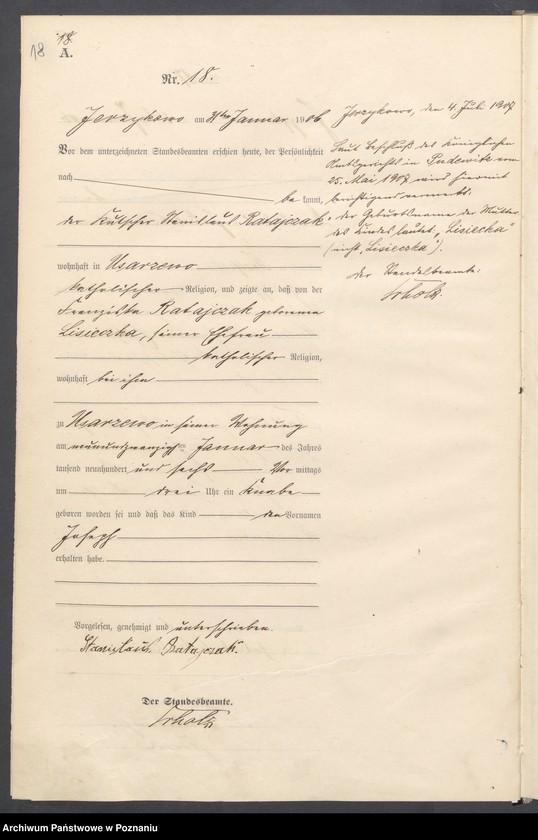 18.
18
A.
Nr. 18.
Jerzykowo am 31ten Januar 1906
Vor dem unterzeichneten Standesbeamten erschien heute, der Persönlichkeit
nach
be kannt,
der Kutscher Stanislaus Ratajczak
wohnhaft in Uzarzewo
katholischer Religion, und zeigte an, daß von der
Franziska Ratajczak geborenen
Lisieczka, seiner Ehefrau
katholischer Religion,
wohnhaft bei ihm
zu Uzarzewo in seiner Wohnung
am neunundzwanzigsten Januar des Jahres
tausend neunhundert und sechs Vor mittags
um drei Uhr ein Knabe
geboren worden sei und daß das Kind den Vornamen
Joseph
erhalten habe.
Vorgelesen, genehmigt und unterschrieben.
Stanisłaus Ratajczak.
Der Standesbeamte.
Jerzykowo, den 4. Juli 1907
Laut Beschluß des Königlichen
Amtsgerichts in Pudewitz vom
25. Mai 1907 wird hiermit
berichtigend vermerkt:
der Geburtsname der Mutter
des Kindes lautet "Lisiecka"
(nicht "Lisieczka").
Der Standesbeamte:
Archiwum Państwowe w Poznaniu